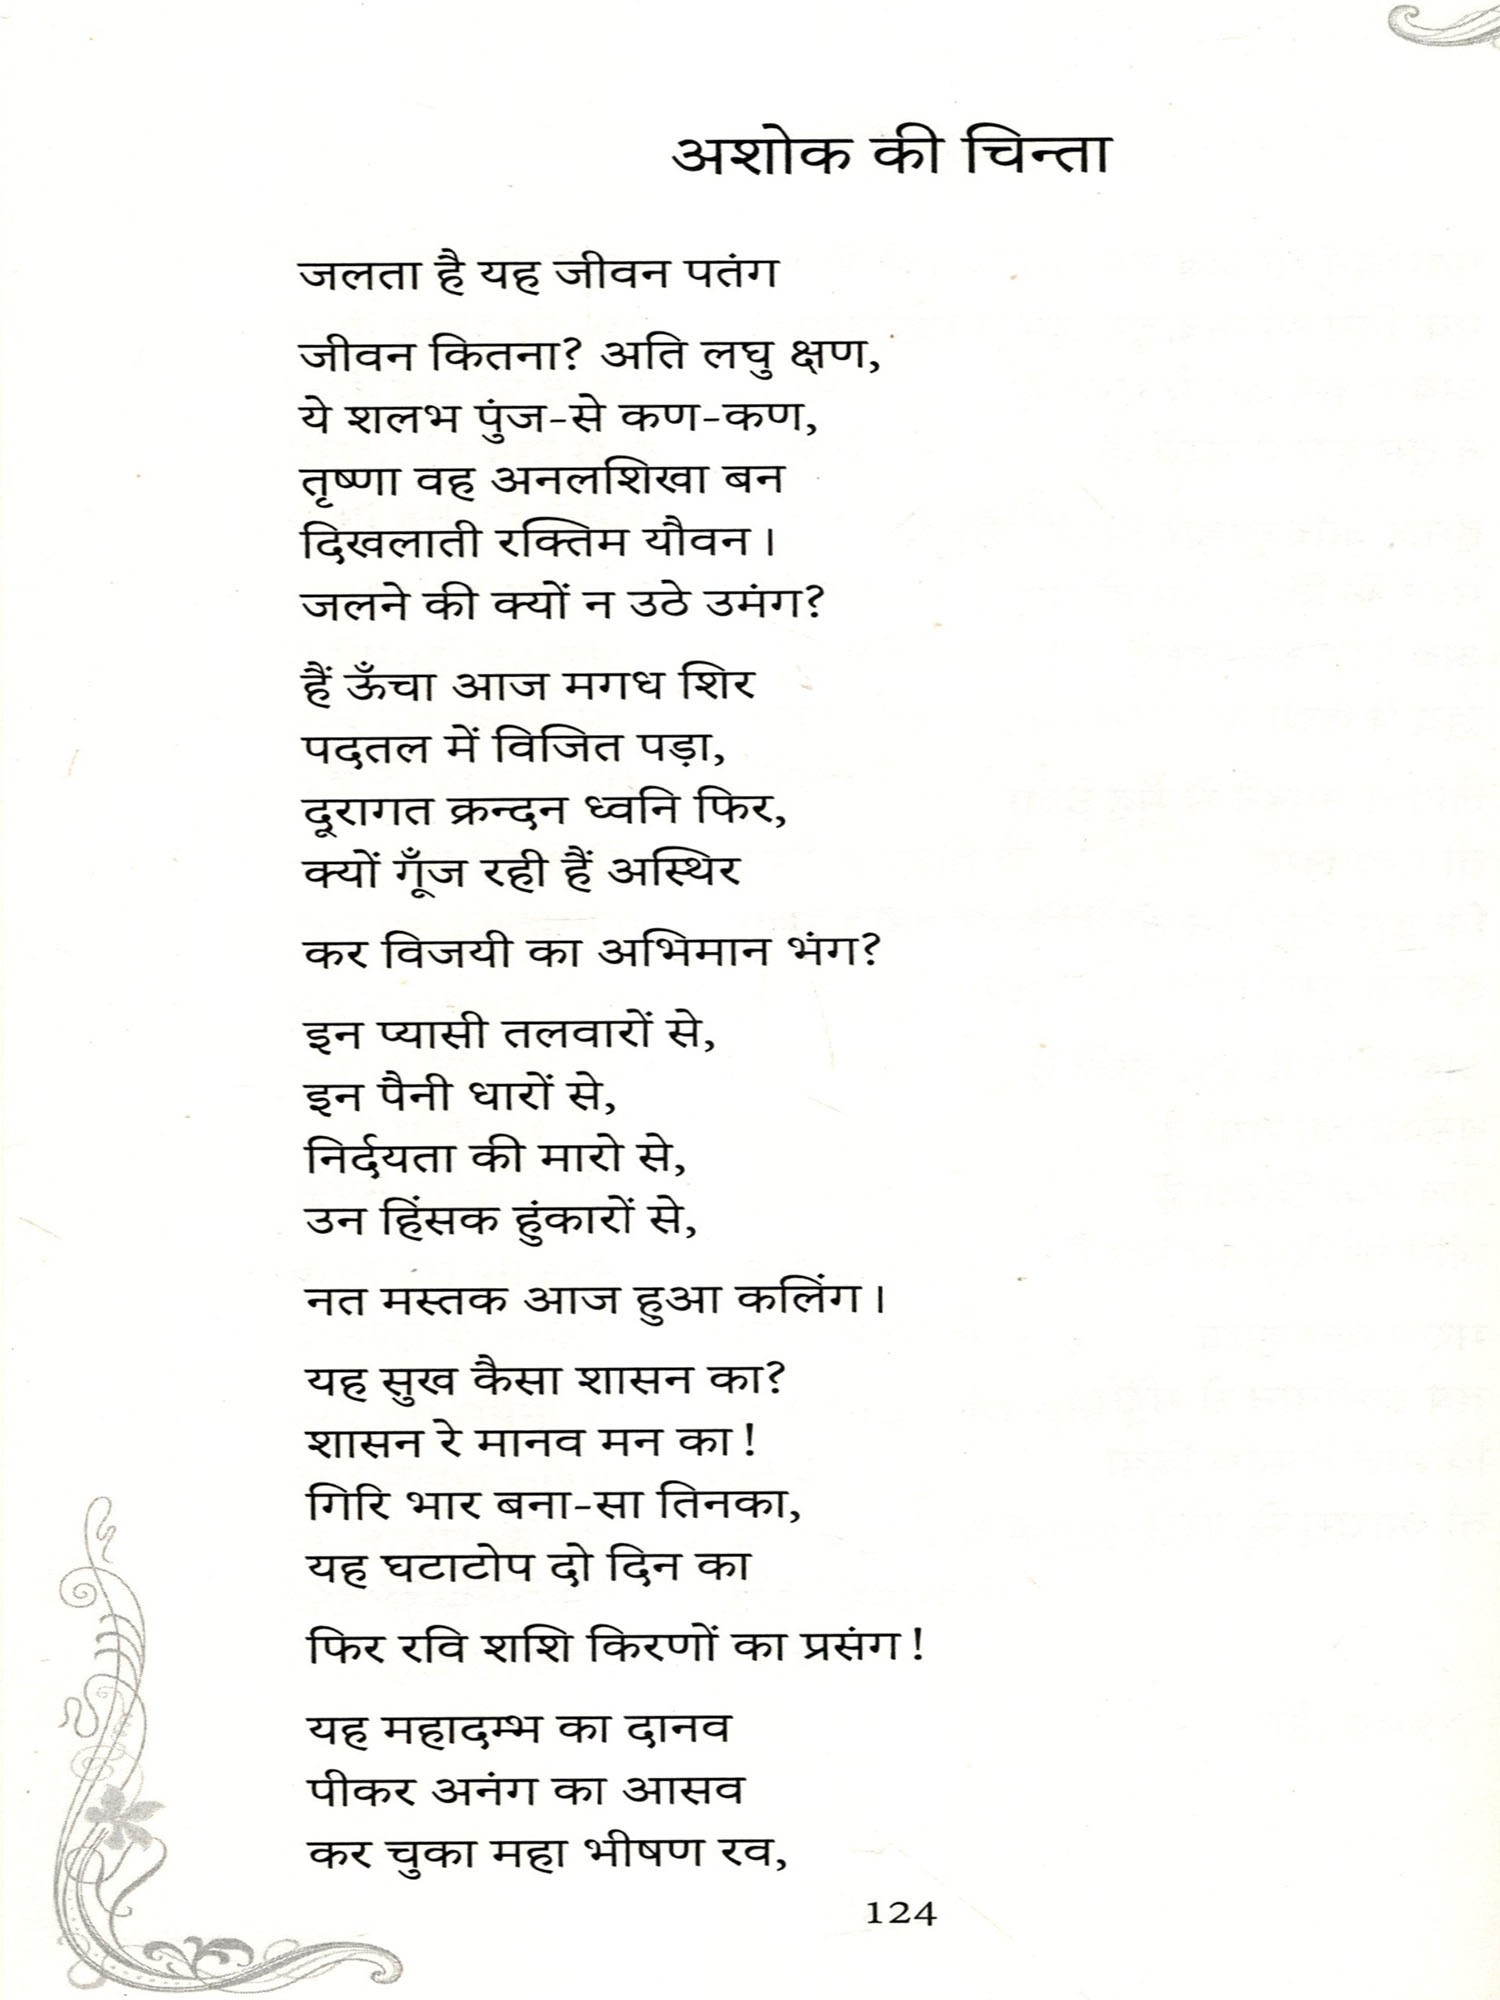 अशोक की चिन्ता
जलता है यह जीवन पतंग
जीवन कितना? अति लघु क्षण,
ये शलभ पुंज-से कण-कण,
तृष्णा वह अनलशिखा बन
दिखलाती रक्तिम यौवन।
जलने की क्यों न उठे उमंग?
हैं ऊँचा आज मगध शिर
पदतल में विजित पड़ा,
दूरागत क्रन्दन ध्वनि फिर,
क्यों गूँज रही हैं अस्थिर
कर विजयी का अभिमान भंग?
इन प्यासी तलवारों से,
इन पैनी धारों से,
निर्दयता की मारो से,
उन हिंसक हुंकारों से,
नत मस्तक आज हुआ कलिंग।
यह सुख कैसा शासन का?
शासन रे मानव मन का!
गिरि भार बना-सा तिनका,
यह घटाटोप दो दिन का
फिर रवि शशि किरणों का प्रसंग!
यह महादम्भ का दानव
पीकर अनंग का आसव
कर चुका महा भीषण रव,
124